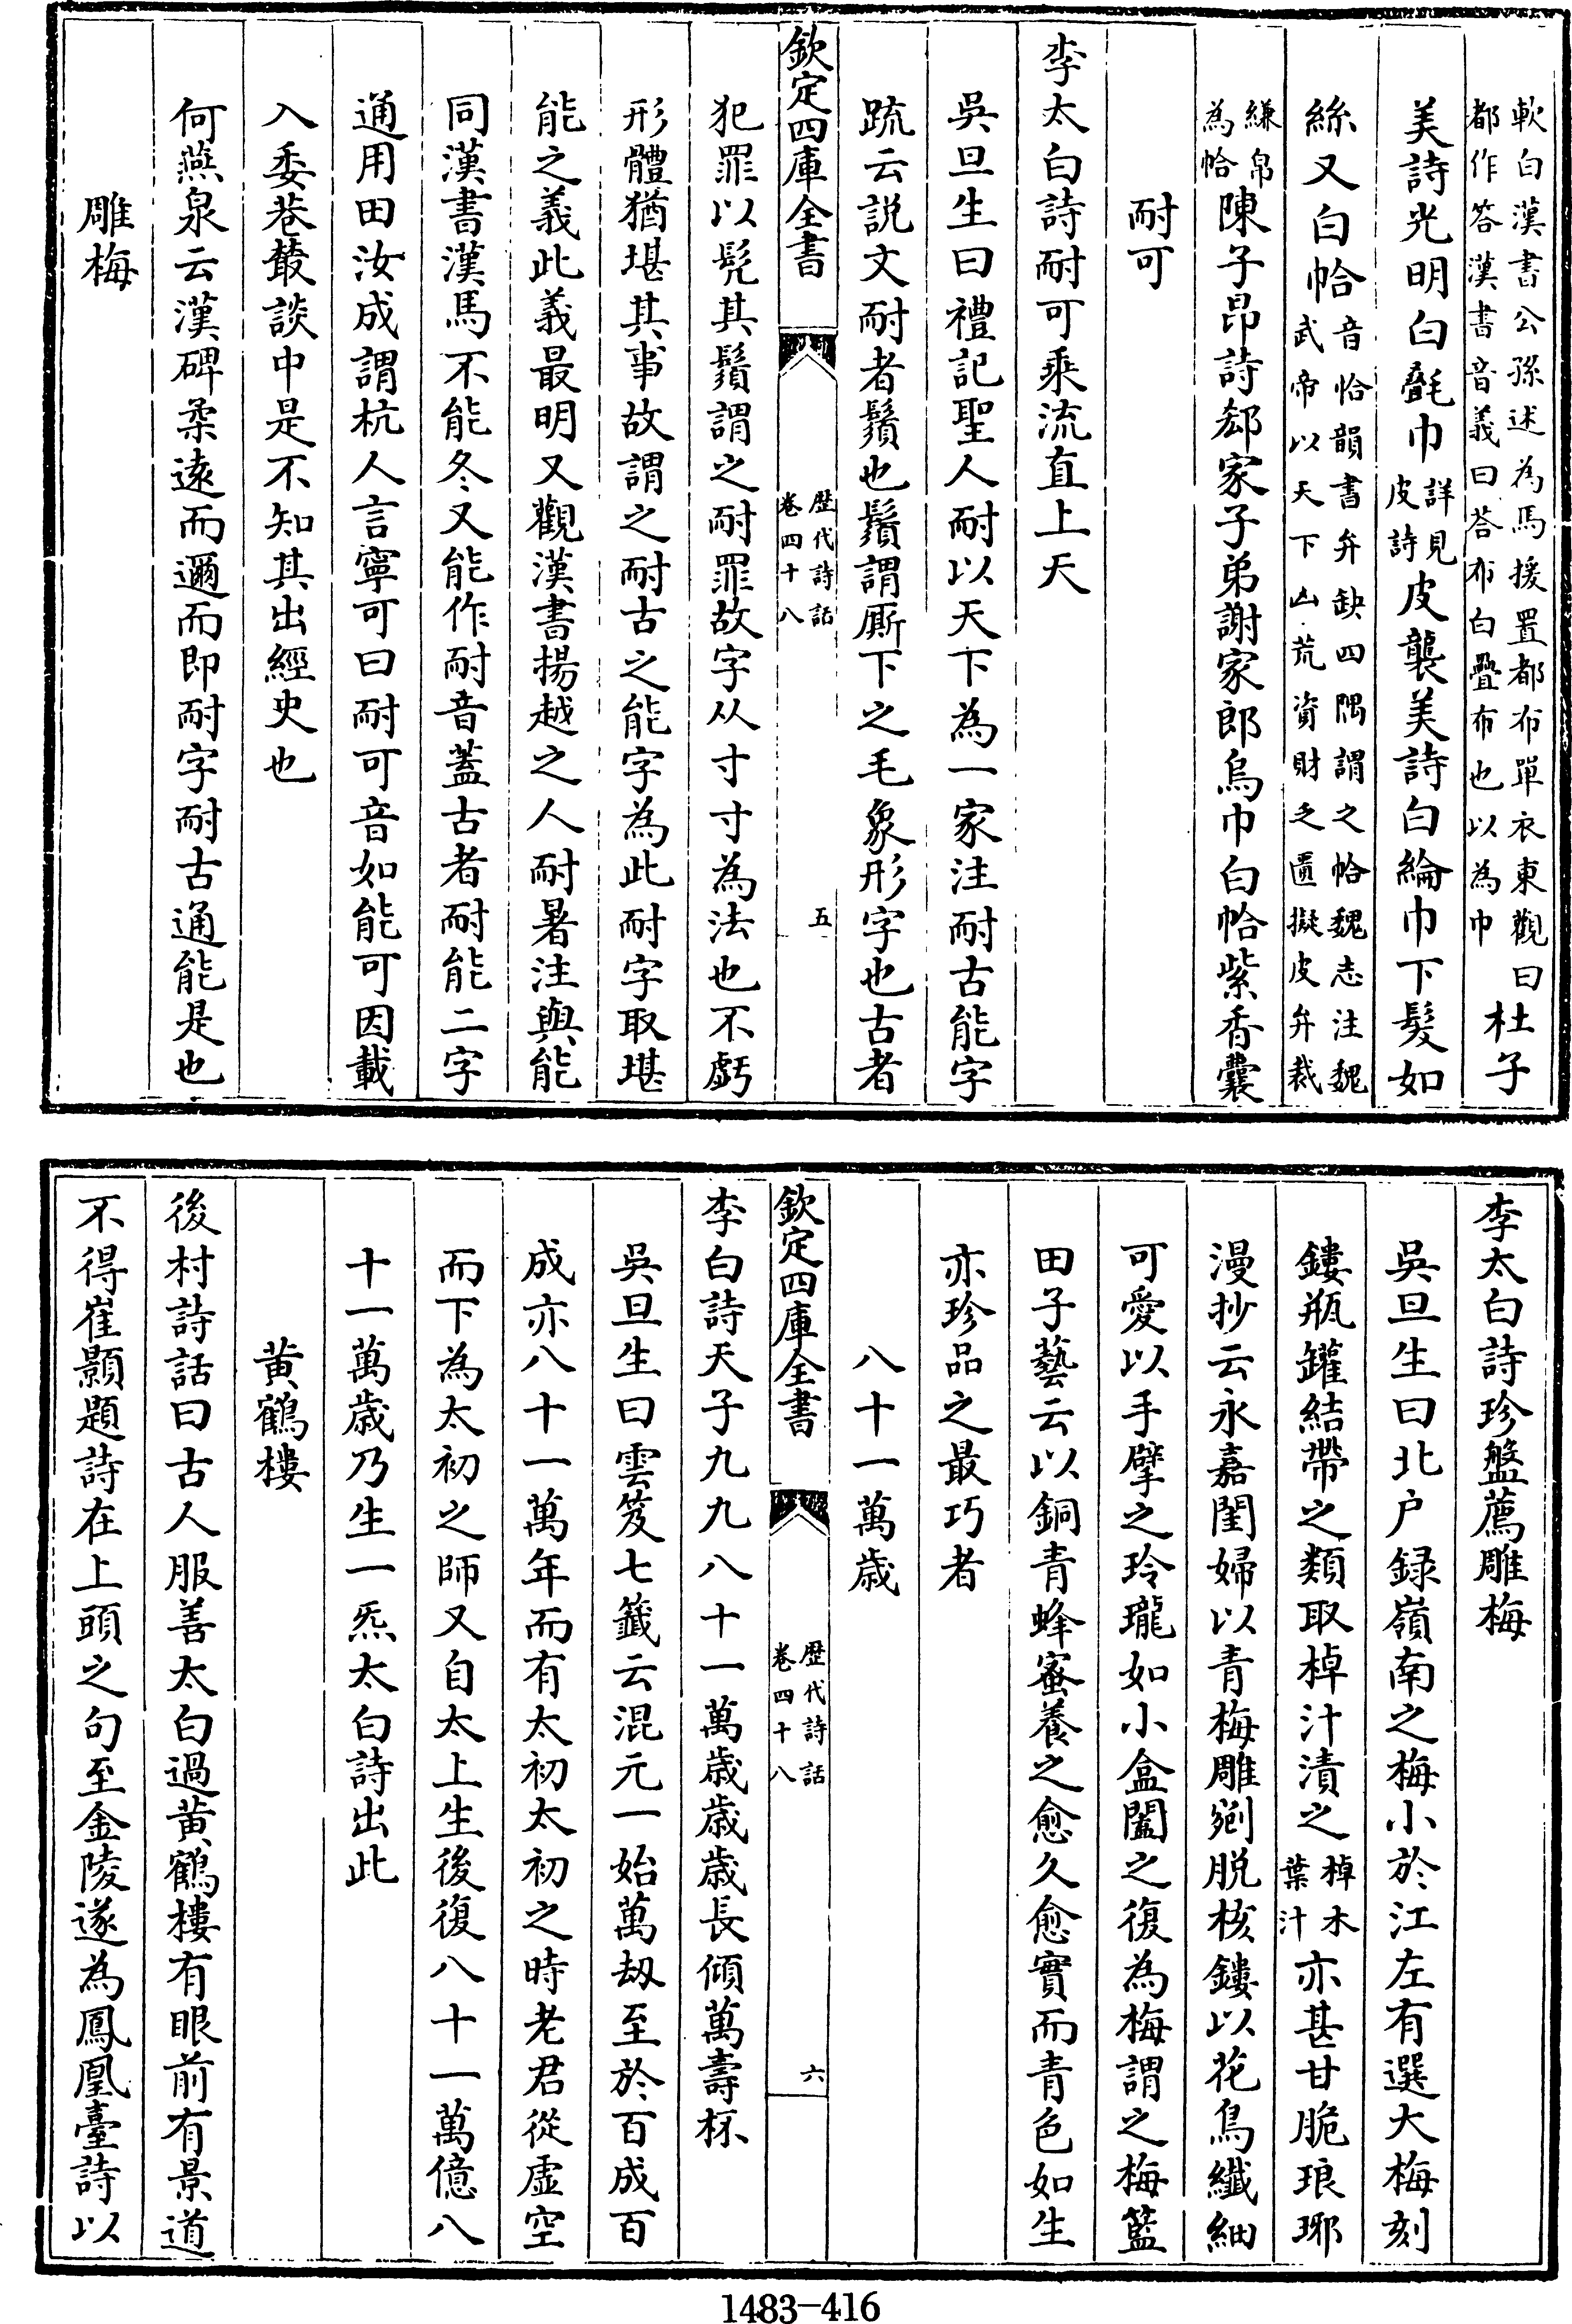 軟白漢書公孫述為馬援置都布單衣東觀曰
都作答漢書音義曰荅布白疊布也以為巾
杜子
美詩光明白㲲巾
詳見
皮詩
皮襲美詩白綸巾下髮如
絲又白帢
音恰韻書弁缺四隅謂之帢魏志注魏
武帝以天下凶荒資財乏匱擬皮弁裁
縑帛
為帢
陳子昂詩郄家子弟謝家郎烏巾白帢紫香囊
耐可
李太白詩耐可乘流直上天
吳旦生曰禮記聖人耐以天下為一家注耐古能字
疏云説文耐者鬚也鬚謂厮下之毛象形字也古者
欽定四庫全書
歴代詩話
卷四十八
五
犯罪以髠其鬚謂之耐罪故字从寸寸為法也不虧
形體猶堪其事故謂之耐古之能字為此耐字取堪
能之義此義最明又觀漢書揚越之人耐暑注與能
同漢書漢馬不能冬又能作耐音蓋古者耐能二字
通用田汝成謂杭人言寧可曰耐可音如能可因載
入委巷叢談中是不知其出經史也
何燕泉云漢碑柔逺而邇而即耐字耐古通能是也
雕梅
李太白詩珍盤薦雕梅
吳旦生曰北户録嶺南之梅小於江左有選大梅刻
鏤瓶罐結帶之類取棹汁漬之
棹木
葉汁
亦甚甘脆琅琊
漫抄云永嘉閨婦以青梅雕剜脱核鏤以花鳥纖細
可愛以手擘之玲瓏如小盒闔之復為梅謂之梅籃
田子藝云以銅青蜂蜜養之愈久愈實而青色如生
亦珍品之最巧者
八十一萬歳
欽定四庫全書
歴代詩話
卷四十八
六
李白詩天子九九八十一萬歳歳歳長傾萬壽杯
吳旦生曰雲笈七籤云混元一始萬刼至於百成百
成亦八十一萬年而有太初太初之時老君從虛空
而下為太初之師又自太上生後復八十一萬億八
十一萬歳乃生一炁太白詩出此
黄鶴樓
後村詩話曰古人服善太白過黄鶴樓有眼前有景道
不得崔顥題詩在上頭之句至金陵遂為鳳凰臺詩以
1483-416